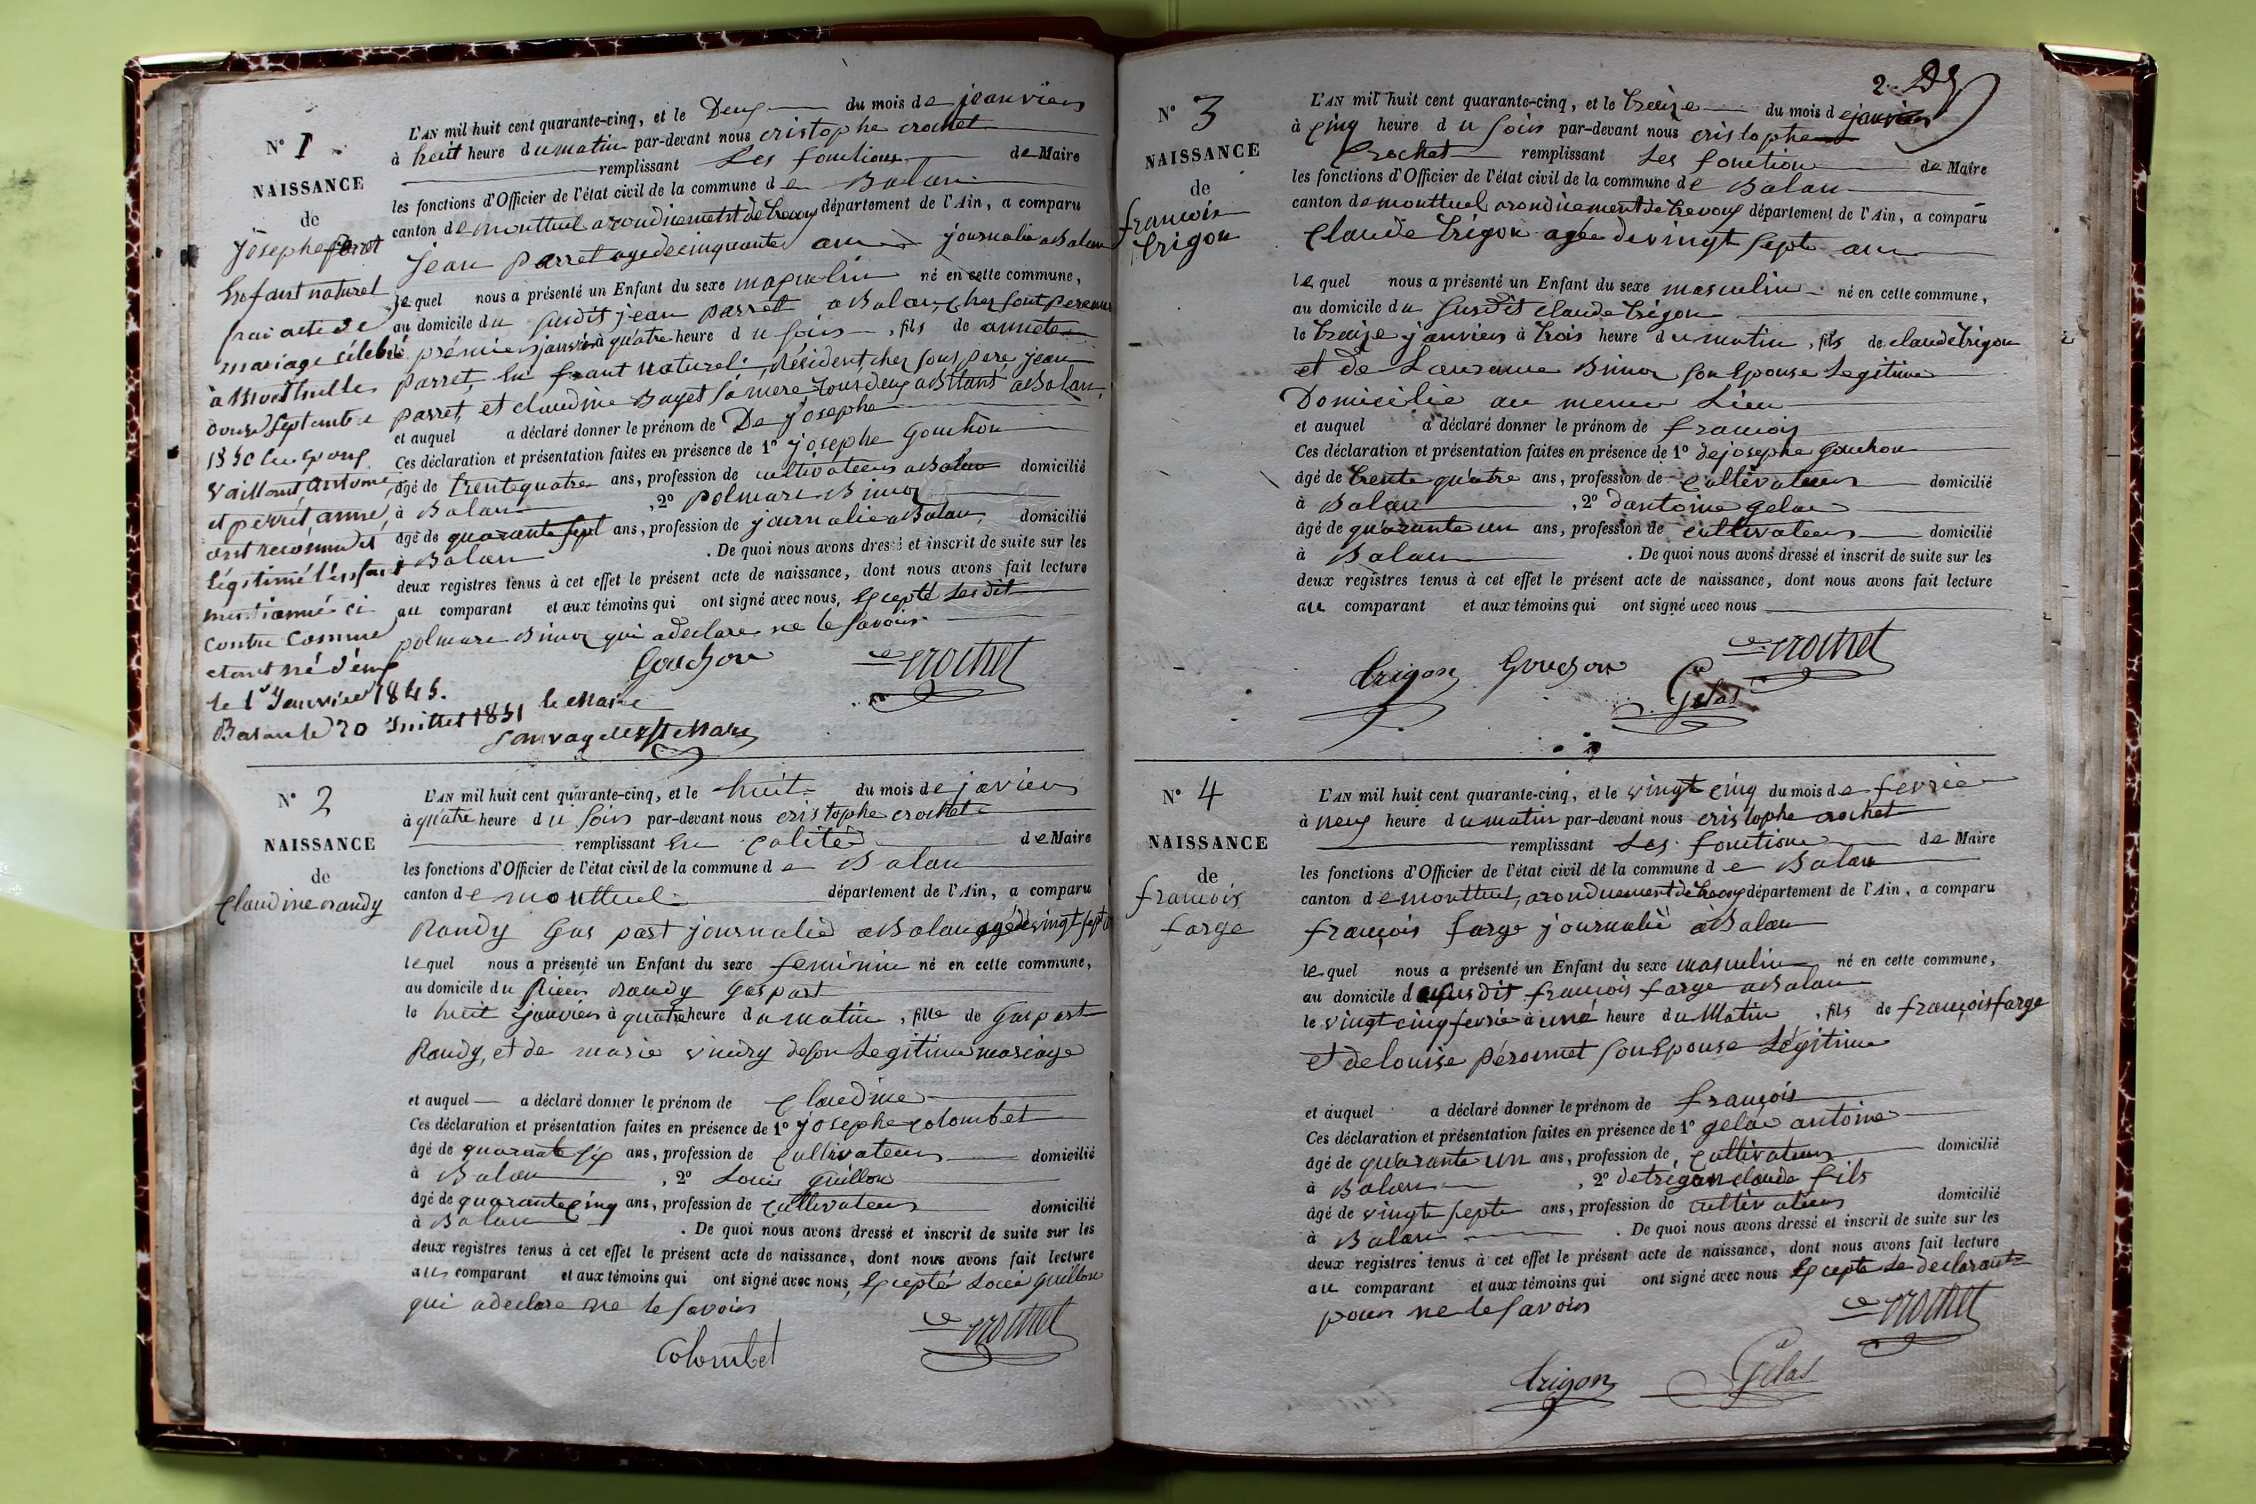 N° 1
NAISSANCE
de
josephe parret
Enfant naturel
par acte de
mariage célebré
à Montluelle
douze Septembre
1850 les époux
Vaillant Antoine
et perret, anne
ont reconnu et
légitimé l'enfant
mentionné ci
contre comme
étant né d'eux
le 1er Janvier 1845.
Balan le 20 Juillet 1851 le Maire
L'AN mil huit cent quarante-cinq, et le Deux du mois de jeanviers
à heuit heure du matin par-devant nous cristophe crochet
remplissant Les fonctions de Maire
les fonctions d'Officier de l'état civil de la commune de Balan
canton de monttuel arondicement de trevoux département de l'Ain, a comparu
jean parret age de cinquante ans journalie a Balan
lequel nous a présenté un Enfant du sexe masculin né en cette commune,
au domicile du susdit jean parret a Balan, chez sont pere
le prémiers janvier à quatre heure du soirs, fils de annete
parret, En fant naturel, Résident chez sous pere jean
parret, et claudine Bayet sa mere tous deux abitans a Balan,
et auquel a déclaré donner le prénom de De josephe
Ces déclaration et présentation faites en présence de 1° josephe Gouchon
âgé de trente quatre ans, profession de cultivateurs a Balan domicilié
à Balan, 2° polmare Bimoz
âgé de quarante sept ans, profession de journalie a Balan, domicilié
à Balan. De quoi nous avons dressé et inscrit de suite sur les
deux registres tenus à cet effet le présent acte de naissance, dont nous avons fait lecture
au comparant et aux témoins qui ont signé avec nous, Excepté Ledit
polmare Bimoz qui a declare ne le savoir
Gouchon crochet
N° 2
NAISSANCE
de
Claudine Randy
L'AN mil huit cent quarante-cinq, et le huit du mois de javiers
à quatre heure du soirs par-devant nous cristophe crochet
remplissant En calité de Maire
les fonctions d'Officier de l'état civil de la commune de Balan
canton de monttuel département de l'Ain, a comparu
Randy Gas part journalié a Balan agé de vingt sept
lequel nous a présenté un Enfant du sexe feminin né en cette commune,
au domicile du sieur Randy Gaspart
le huit janviers à quatre heure du matin, fille de Gaspart
Randy, et de marie vindry de son Legitime mariage
et auquel a déclaré donner le prénom de Claudine
Ces déclaration et présentation faites en présence de 1° josephe colombet
âgé de quarante six ans, profession de Cultivateurs domicilié
à Balan, 2° Louis Guillon
âgé de quarante cinq ans, profession de Cultivateurs domicilié
à Balan. De quoi nous avons dressé et inscrit de suite sur les
deux registres tenus à cet effet le présent acte de naissance, dont nous avons fait lecture
au comparant et aux témoins qui ont signé avec nous, Excepté Louis Guillon
qui a declare ne le savoirs
Colombet crochet
2
N° 3
NAISSANCE
de
francois
trigon
L'AN mil huit cent quarante-cinq, et le treize du mois de janviers
à cinq heure du soirs par-devant nous cristophe
Crochet remplissant Les fonction de Maire
les fonctions d'Officier de l'état civil de la commune de Balan
canton de monttuel arondicement de trevoux département de l'Ain, a comparu
Claude trigon agée de vingt sept an
lequel nous a présenté un Enfant du sexe masculin né en cette commune,
au domicile du susdit claude trigon
le treize janviers à trois heure du matin, fils de claude trigon
et de Laurance Bimoz son Epouse Legitime
Domicilie au meme Lieu
et auquel a déclaré donner le prénom de francois
Ces déclaration et présentation faites en présence de 1° de josephe gouchon
âgé de trente quatre ans, profession de Cultivateurs domicilié
à Balan, 2° dantoine gelas
âgé de quarante un ans, profession de cultivateurs domicilié
à Balan. De quoi nous avons dressé et inscrit de suite sur les
deux registres tenus à cet effet le présent acte de naissance, dont nous avons fait lecture
au comparant et aux témoins qui ont signé avec nous
trigon Gouchon crochet
Gelas
N° 4
NAISSANCE
de
francois
farge
L'AN mil huit cent quarante-cinq, et le vingt cinq du mois de fevrie
à neuf heure du matin par-devant nous cristophe crochet
remplissant Les fonction de Maire
les fonctions d'Officier de l'état civil de la commune de Balan
canton de monttuel, arondicement de trevoux département de l'Ain, a comparu
françois farge journalié a Balan
lequel nous a présenté un Enfant du sexe masculin né en cette commune,
au domicile du susdit francois farge a Balan
le vingt cinq fevrié à une heure du Matin, fils de françois farge
et de louise péronnet son Epouse Légitime
et auquel a déclaré donner le prénom de françois
Ces déclaration et présentation faites en présence de 1° gelas antoine
âgé de quarante un ans, profession de Cultivateurs domicilié
à Balan, 2° de trigon claude fils
âgé de vingt sept ans, profession de cultivateurs domicilié
à Balan. De quoi nous avons dressé et inscrit de suite sur les
deux registres tenus à cet effet le présent acte de naissance, dont nous avons fait lecture
au comparant et aux témoins qui ont signé avec nous Excepte Le declarant
pour ne le savoirs
crochet
trigon Gelas